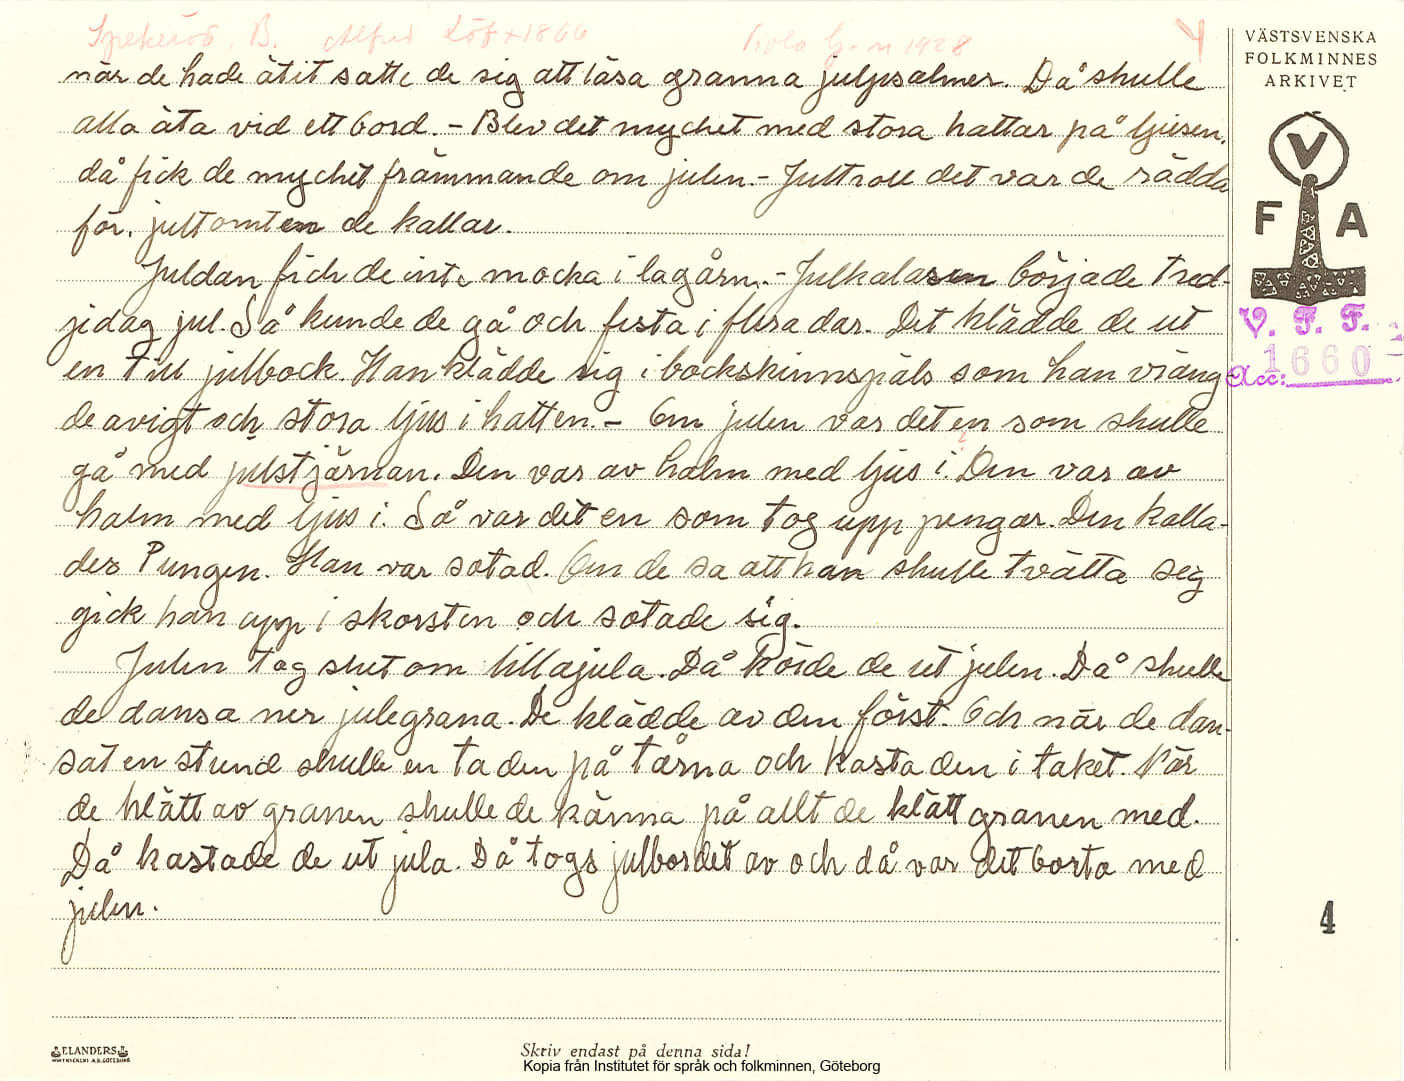 Spekeröd. B. Alfred Löf * 1866 1928 4
när de hade ätit satte de sig att läsa granna julpsalmer. Då skulle
alla äta vid ett bord. – Blev det mycket med stora hattar på ljusen,
då fick de mycket främmande om julen. – Jultroll det var de rädda
för, jultomten de kallar.
Juldan fick de inte mocka i lagårn. – Julkalasen började tred-
jidag jul. Så kunde de gå och festa i flera dar. Det klädde de ut
en till julbock. Han klädde sig i bockskinnspäls som han vräng
de avigt och stora ljus i hatten. – Om julen var det en som skulle
gå med julstjärnan. Den var av halm med ljus i. Den var av
halm med ljus i. Så var det en som tog upp pengar. Den kalla-
des Pungen. Han var sotad. Om de sa att han skulle tvätta seg
gick han upp i skorsten och sotade sig.
Julen tog slut om lillajula. Då körde de ut julen. Då skulle
de dansa ner julegrana. De klädde av den först. Och när de dan-
sat en stund skulle en ta den på tårna och kasta den i taket. När
de klätt av granen skulle de känna på allt de klätt granen med.
Då kastade de ut jula. Då togs julbordet av och då var det borta med
julen.
VÄSTSVENSKA
FOLKMINNES
ARKIVET
V
F A
V. F. F.
Acc: 1660
4
ELANDERS
Skriv endast på denna sida!
Kopia från Institutet för språk och folkminnen, Göteborg